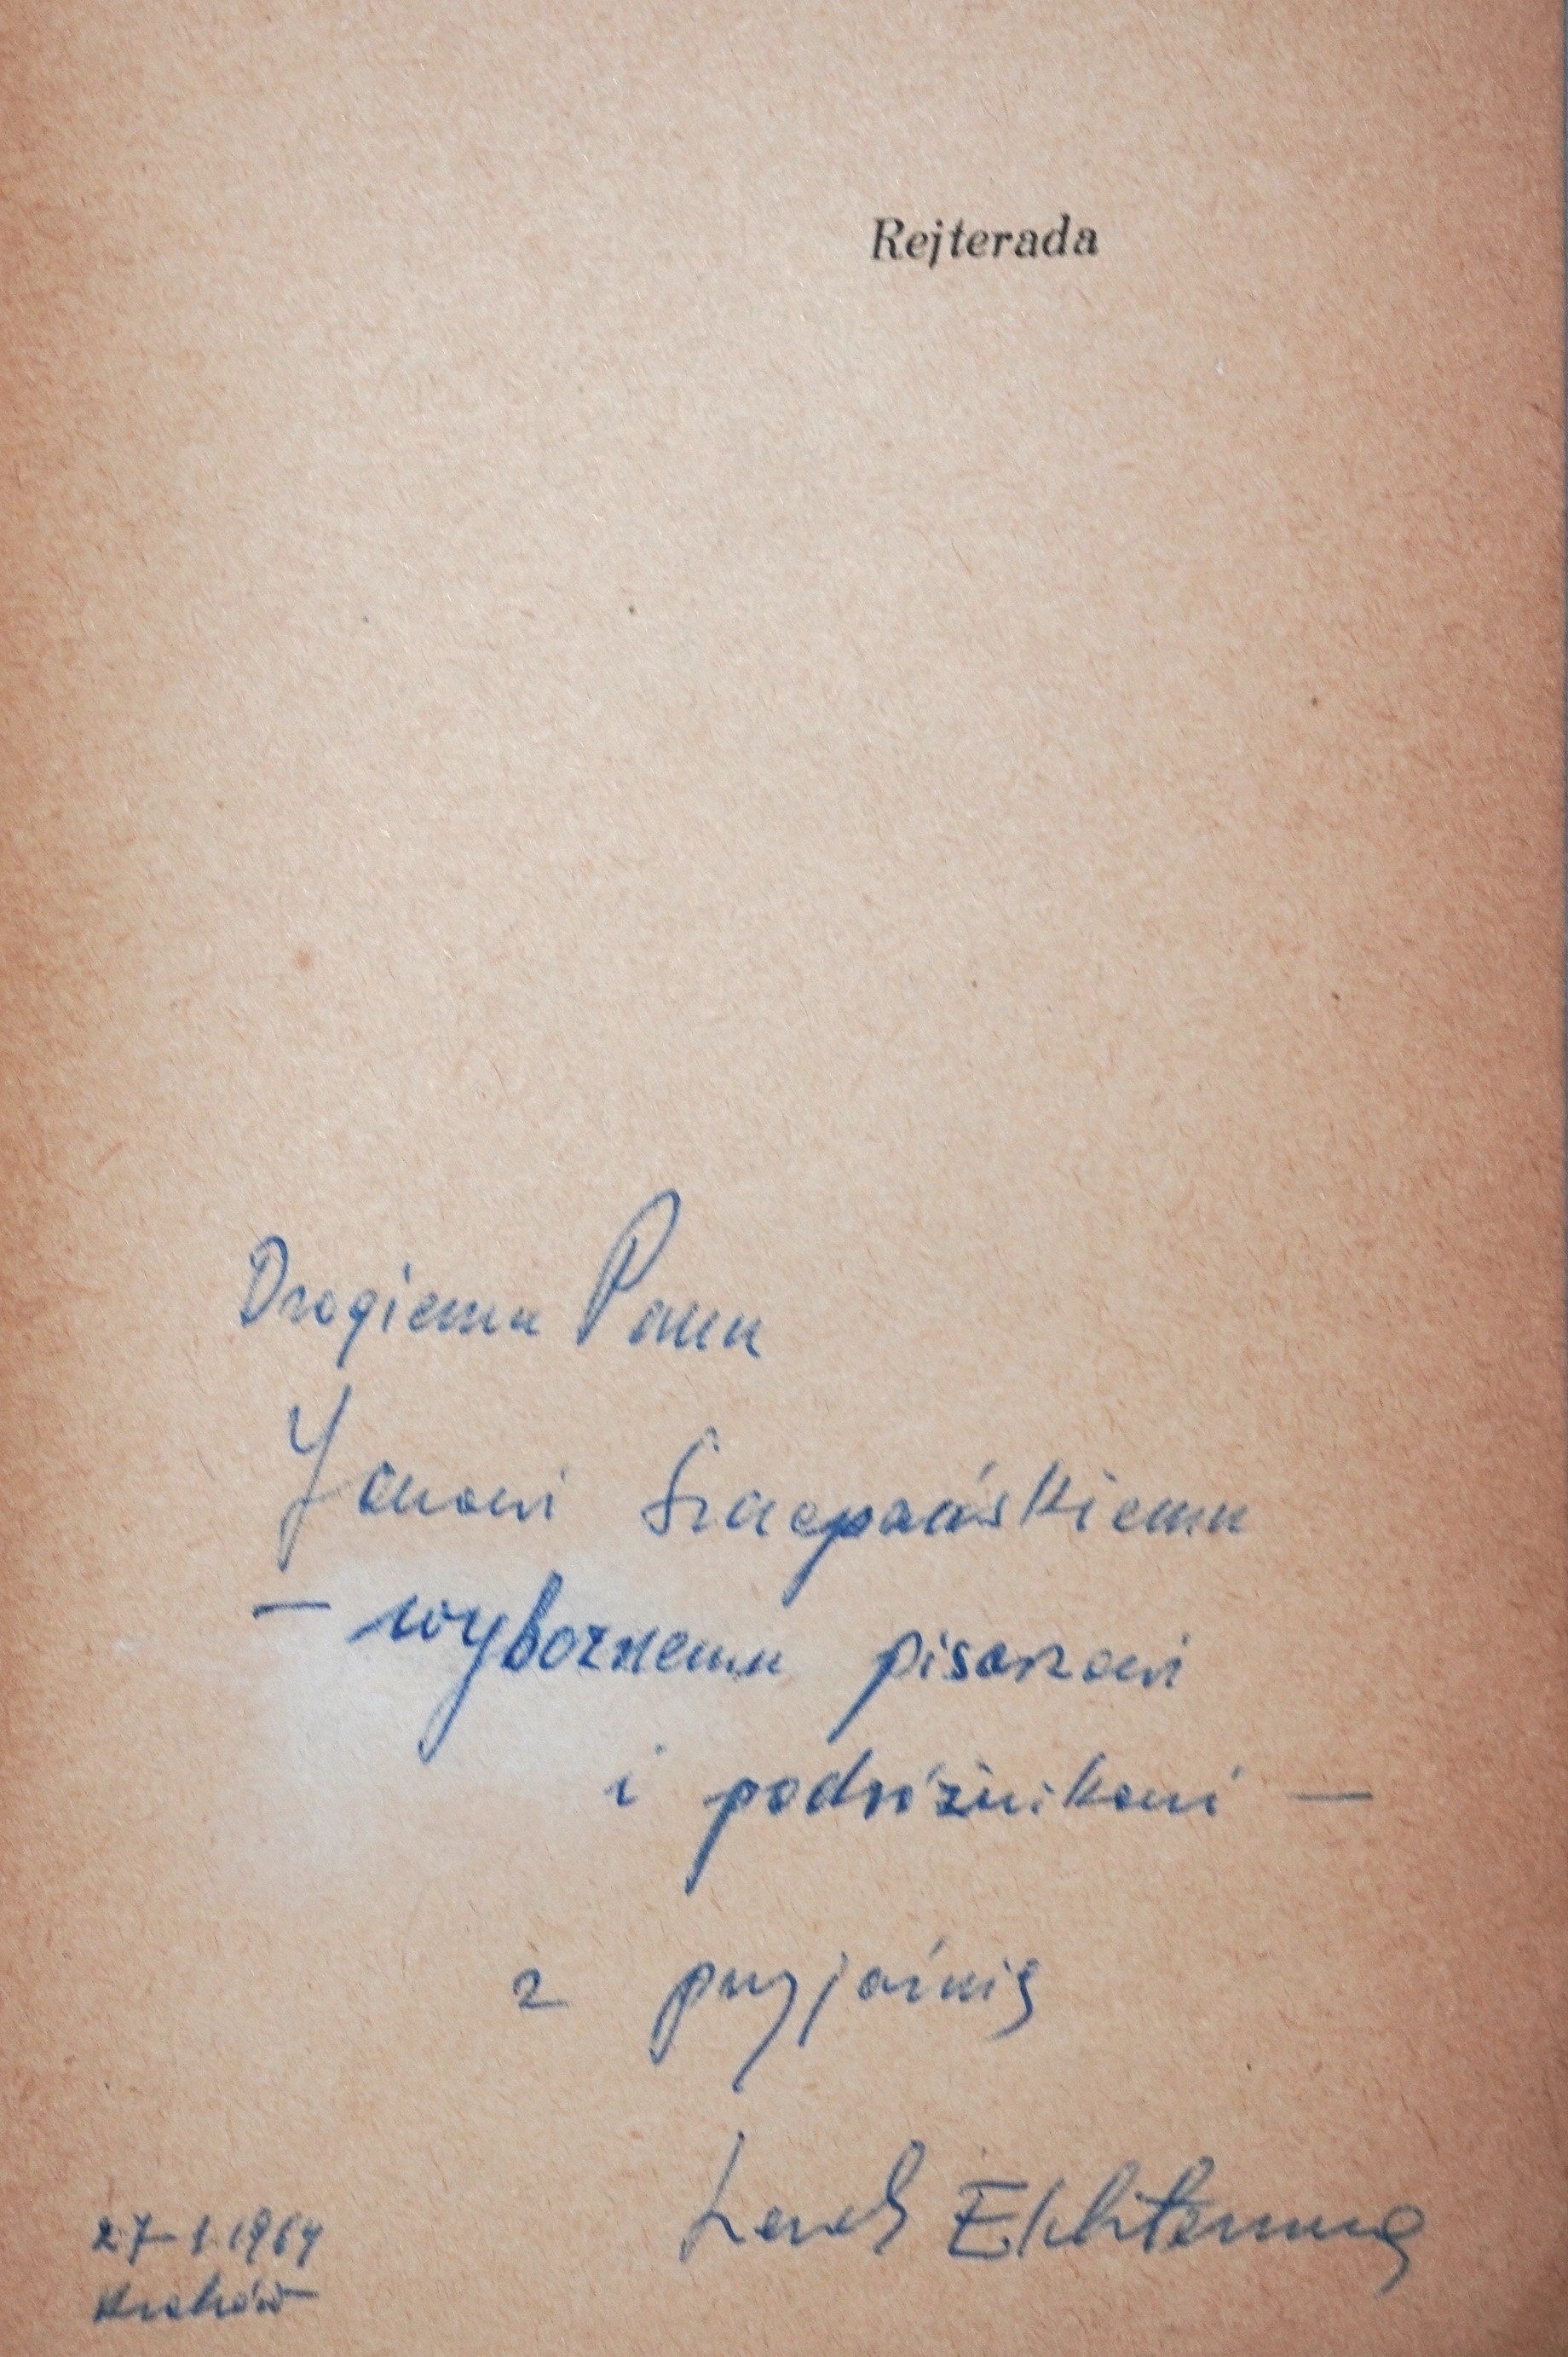 Rejterada
Drogiemu Panu
Janowi Szczepańskiemu
— wybornemu pisarzowi
i podróżnikowi —
z przyjaźnią
Leszek
27-1.1964
Kraków